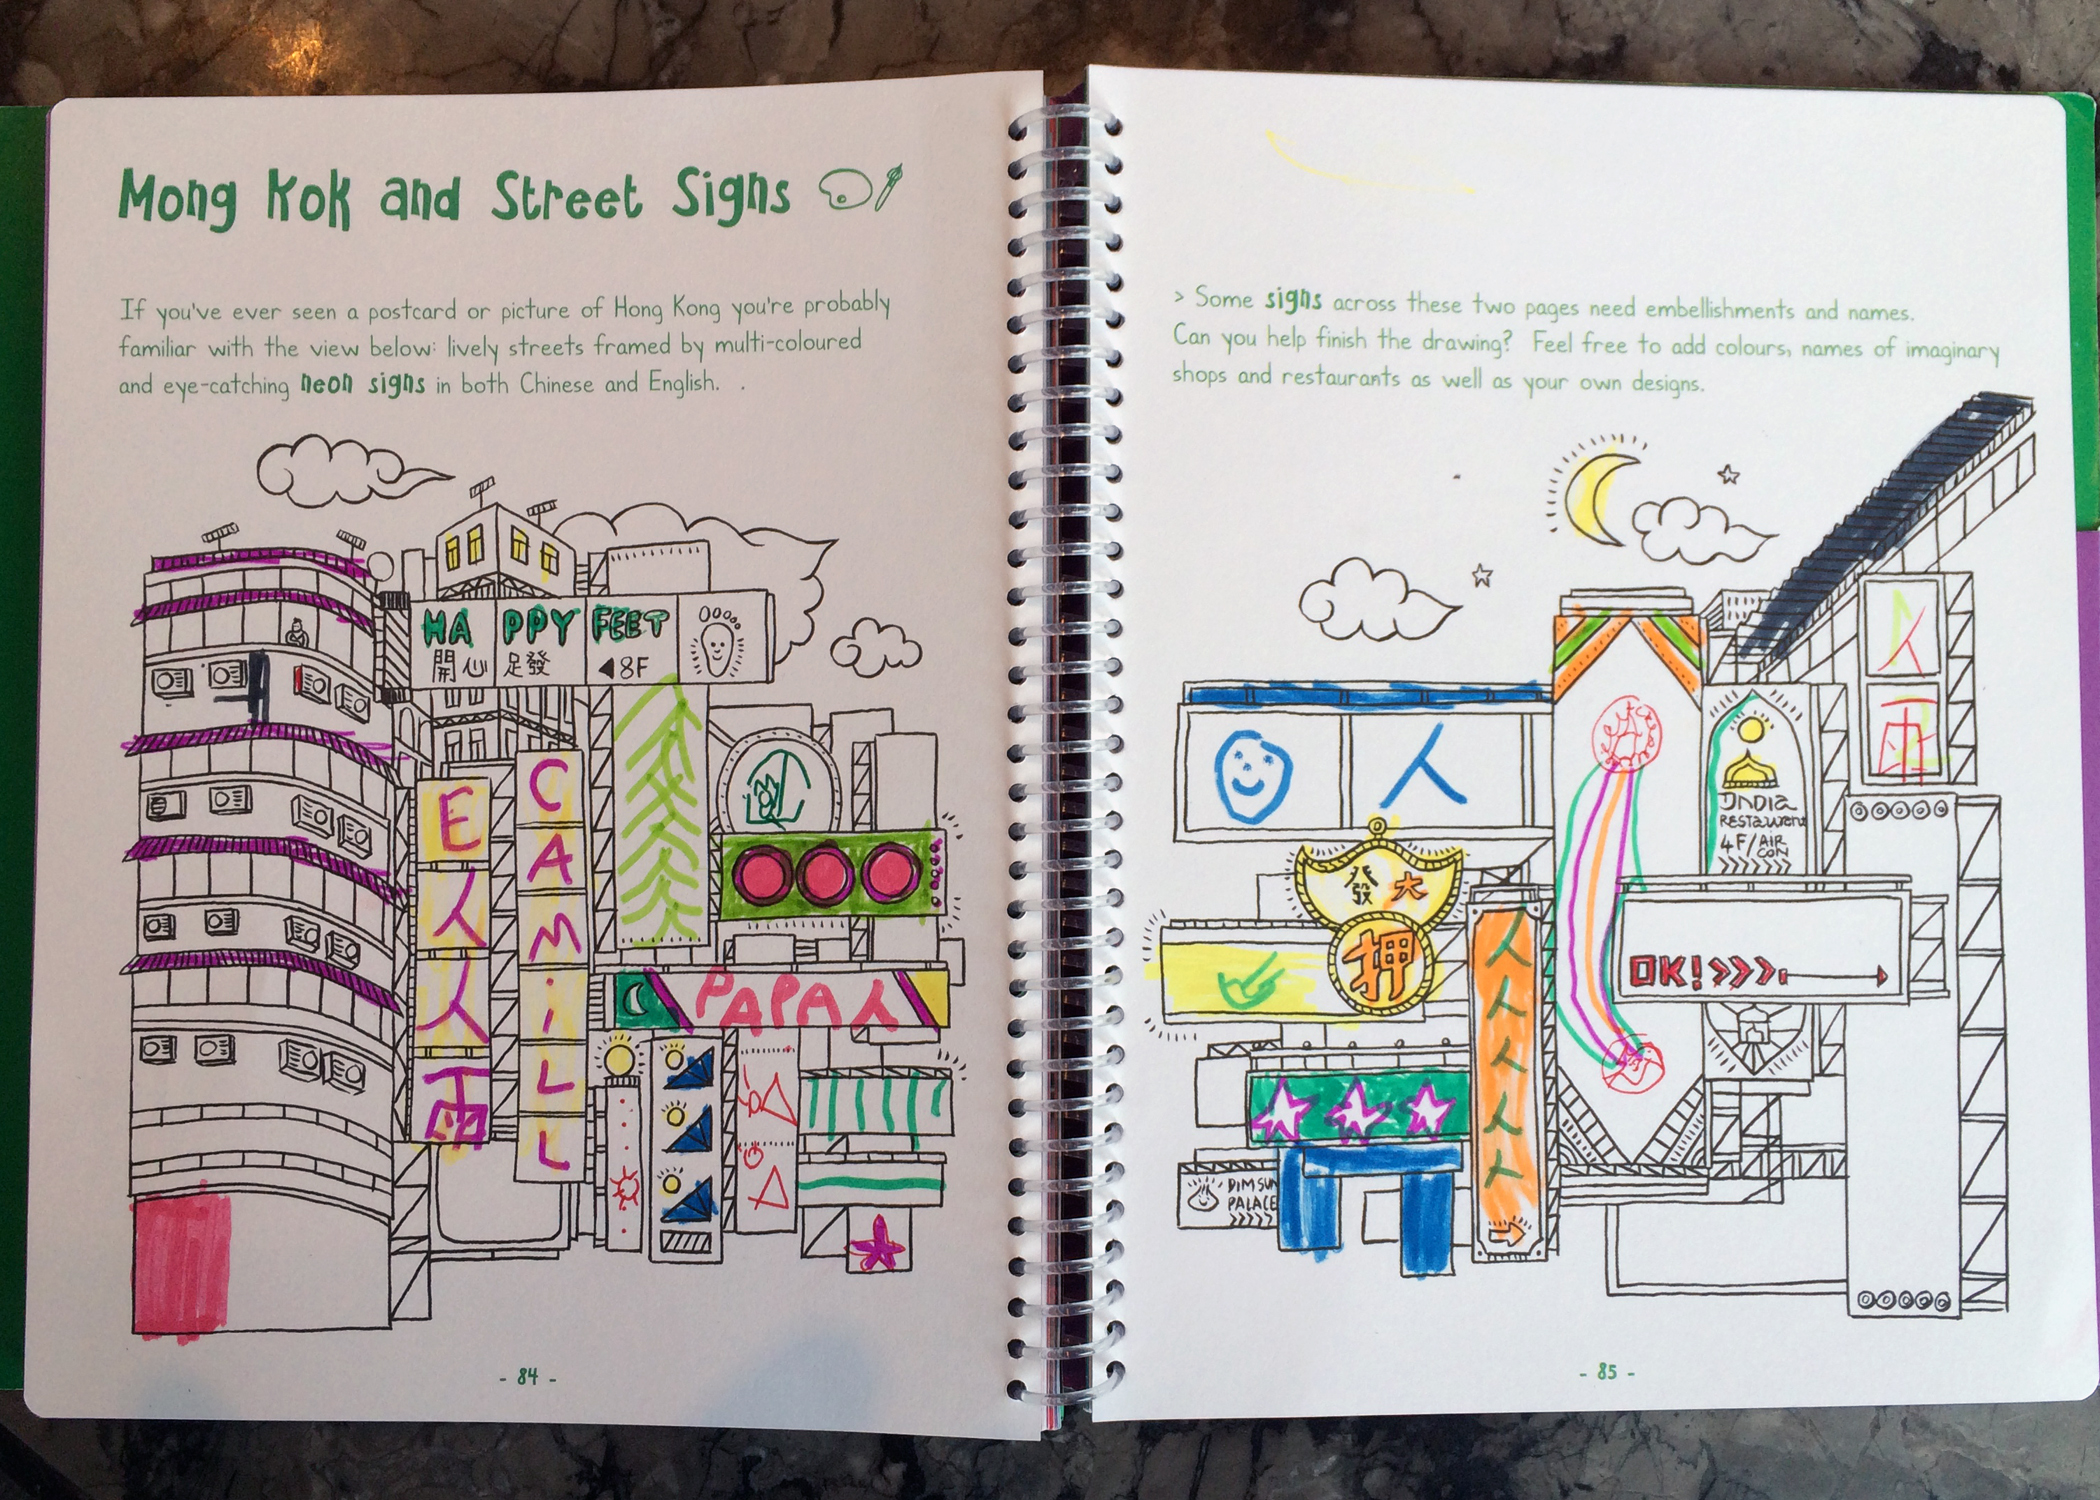 Mong Kok and Street Signs
If you've ever seen a postcard or picture of Hong Kong you're probably
familiar with the view below: lively streets framed by multi-coloured
and eye-catching neon signs in both Chinese and English. .
HAPPY FEET
開心足發
◀8F
E
人
人
雨
CAMiLL
PAPA人
- 84 -
> Some signs across these two pages need embellishments and names.
Can you help finish the drawing? Feel free to add colours, names of imaginary
shops and restaurants as well as your own designs.
人
雨
人
INDIA
RESTAURANT
4F/AIR
CON
>>>>>>>
發大
押
OK!>>>
人
人
人
人
人
DIM SUM
PALACE
>>>>>
- 85 -